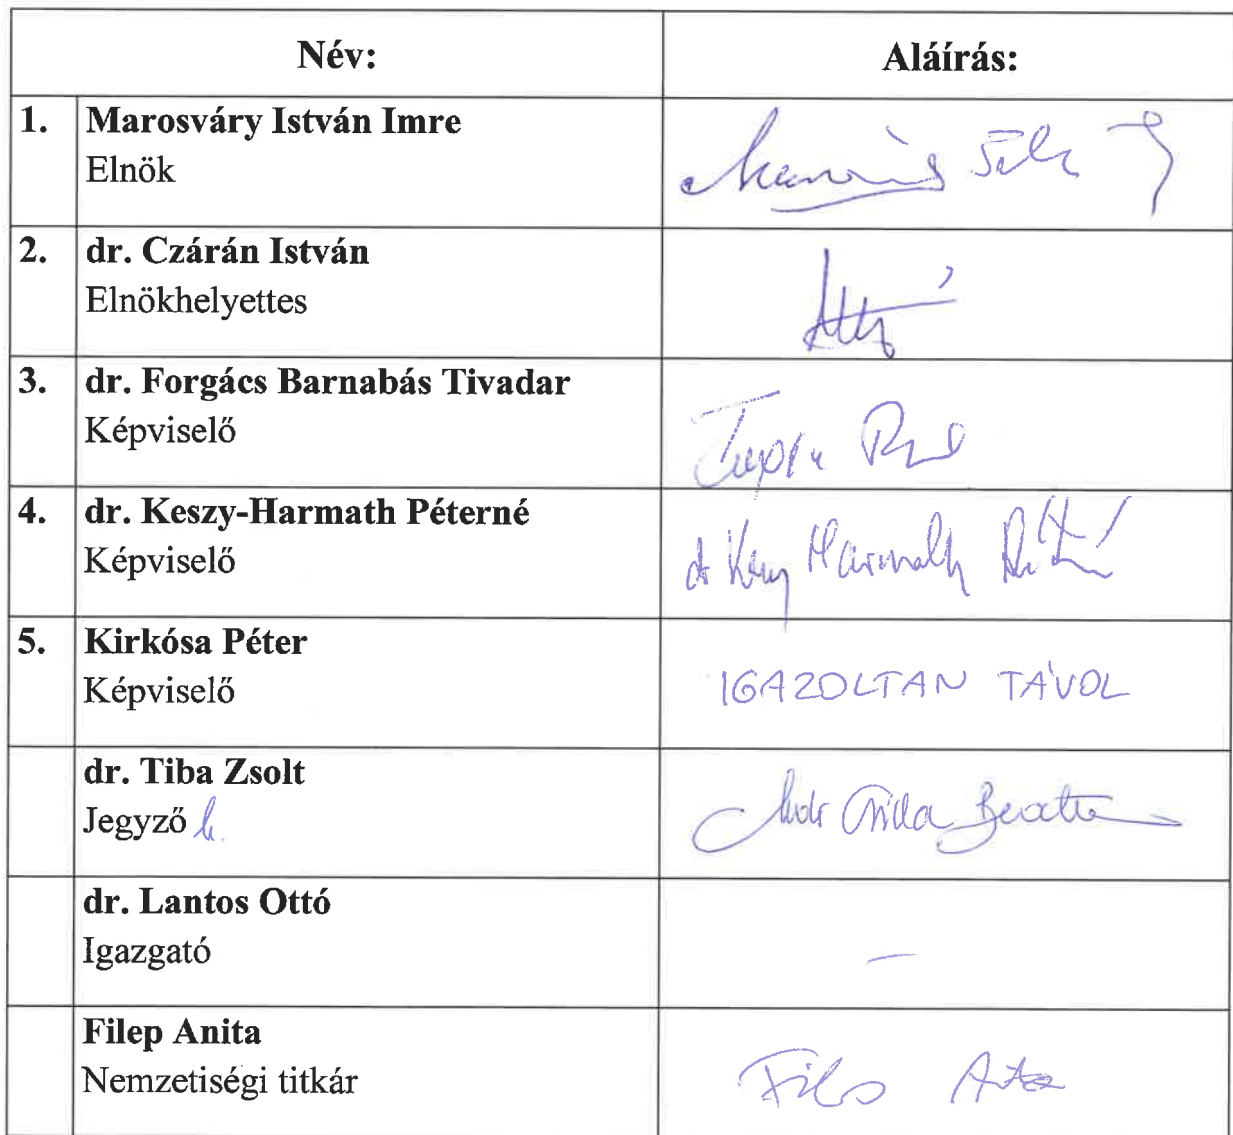 Név: Aláírás:
1. Marosváry István Imre
Elnök
2. dr. Czárán István
Elnökhelyettes
3. dr. Forgács Barnabás Tivadar
Képviselő
4. dr. Keszy-Harmath Péterné
Képviselő
dr Keszy Harmath Péterné
5. Kirkósa Péter
Képviselő
IGAZOLTAN TÁVOL
dr. Tiba Zsolt
Jegyző h.
dr. Lantos Ottó
Igazgató
–
Filep Anita
Nemzetiségi titkár